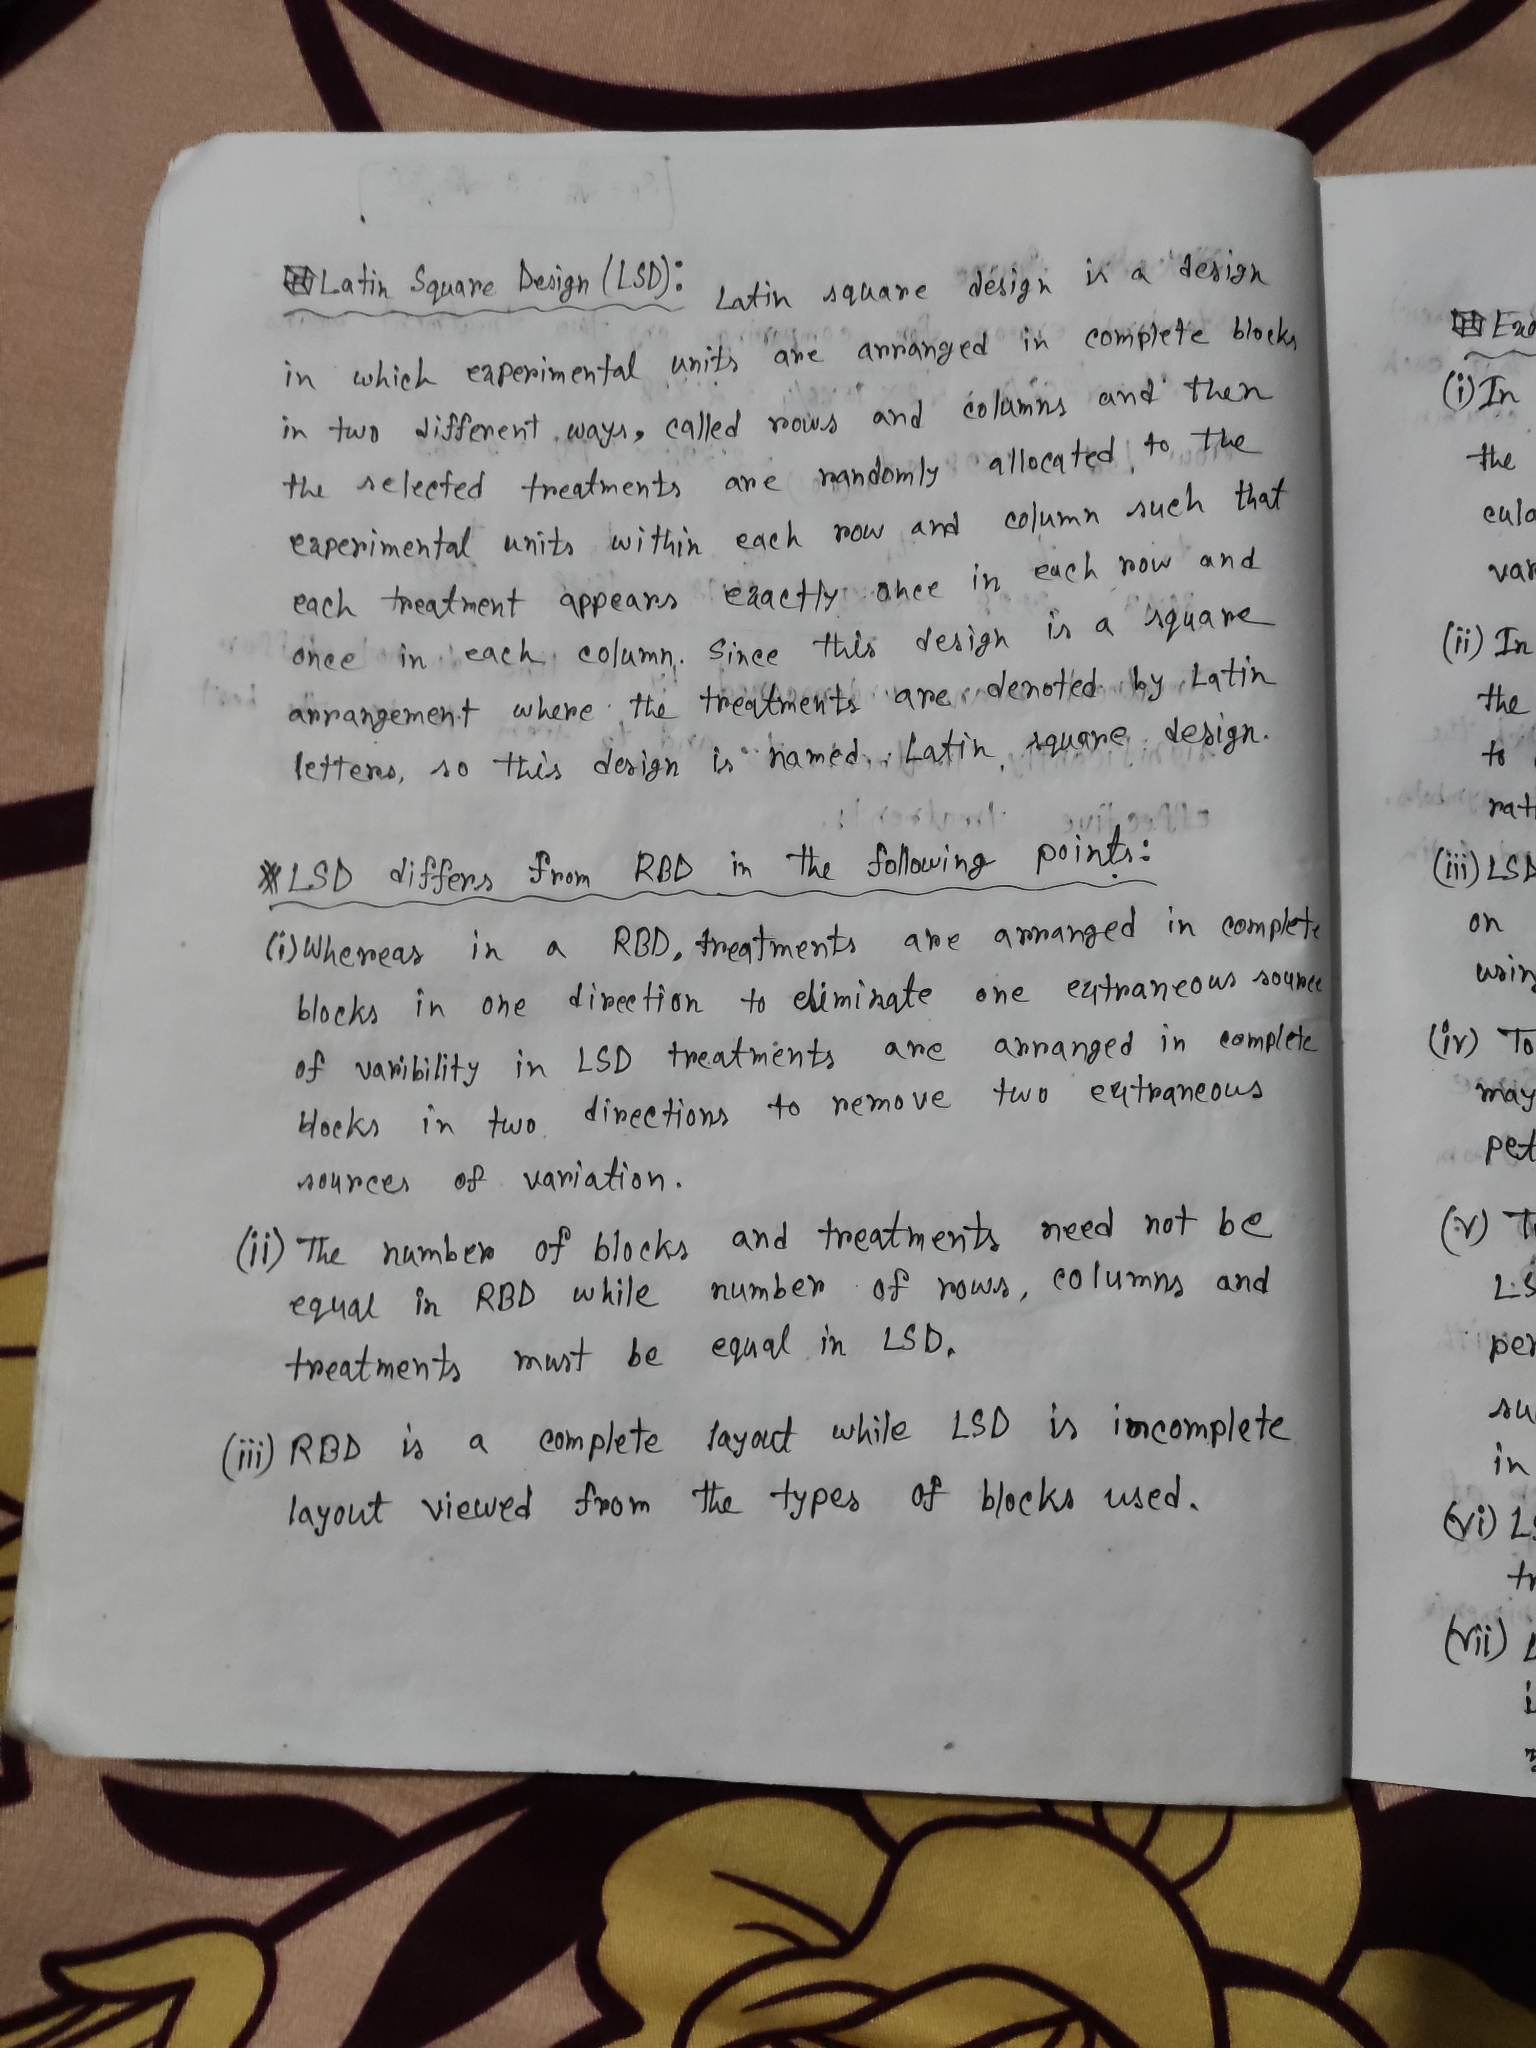 Latin Square Design (LSD): Latin square design is a design
in which experimental units are arranged in complete blocks
in two different ways, called rows and columns and then
the selected treatments are randomly allocated to the
experimental units within each row and column such that
each treatment appears exactly once in each row and
once in each column. Since this design is a square
arrangement where the treatments are denoted by Latin
letters, so this design is named Latin square design.
*LSD differs from RBD in the following points:
(i) Whereas in a RBD, treatments are arranged in complete
blocks in one direction to eliminate one extraneous source
of varibility in LSD treatments are arranged in complete
blocks in two directions to remove two extraneous
sources of variation.
(ii) The number of blocks and treatments need not be
equal in RBD while number of rows, columns and
treatments must be equal in LSD.
(iii) RBD is a complete layout while LSD is incomplete
layout viewed from the types of blocks used.
(i) In
the
(ii) In
the
to
(iii) LSD
on
(iv) To
may
(v)
in
(vi)
(vii)